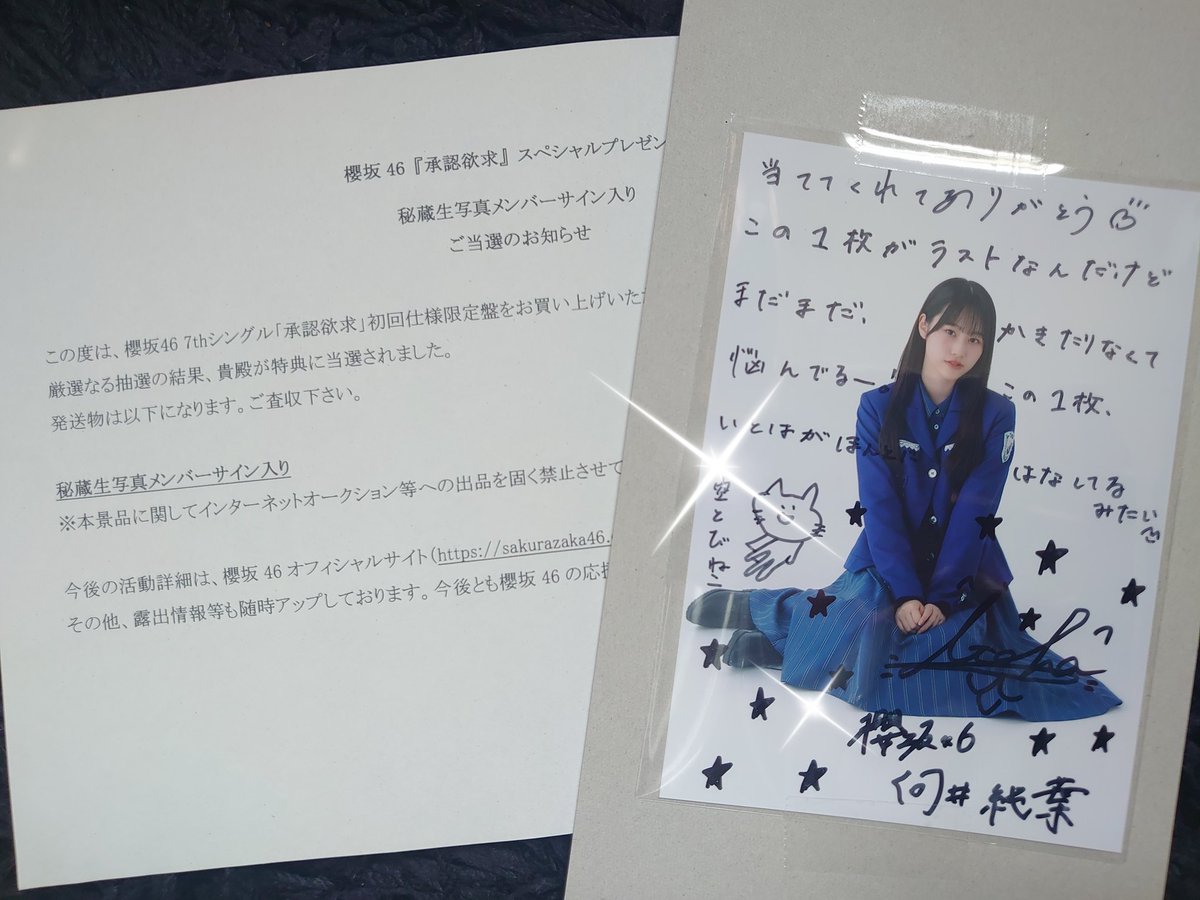 櫻坂 46『承認欲求』スペシャルプレゼン
秘蔵生写真メンバーサイン入り
ご当選のお知らせ
この度は、櫻坂46 7thシングル「承認欲求」初回仕様限定盤をお買い上げいた
厳選なる抽選の結果、貴殿が特典に当選されました。
発送物は以下になります。ご査収下さい。
秘蔵生写真メンバーサイン入り
※本景品に関してインターネットオークション等への出品を固く禁止させて
今後の活動詳細は、櫻坂 46 オフィシャルサイト(https://sakurazaka46.
その他、露出情報等も随時アップしております。今後とも櫻坂 46 の応援
当ててくれてありがとう
この1枚がラストなんだけど
まだまだ、かきたりなくて
悩んでるー この1枚、
いとはがほんとに はなしてる
みたい
空とびねこ
Itoha
櫻坂46
向井純葉